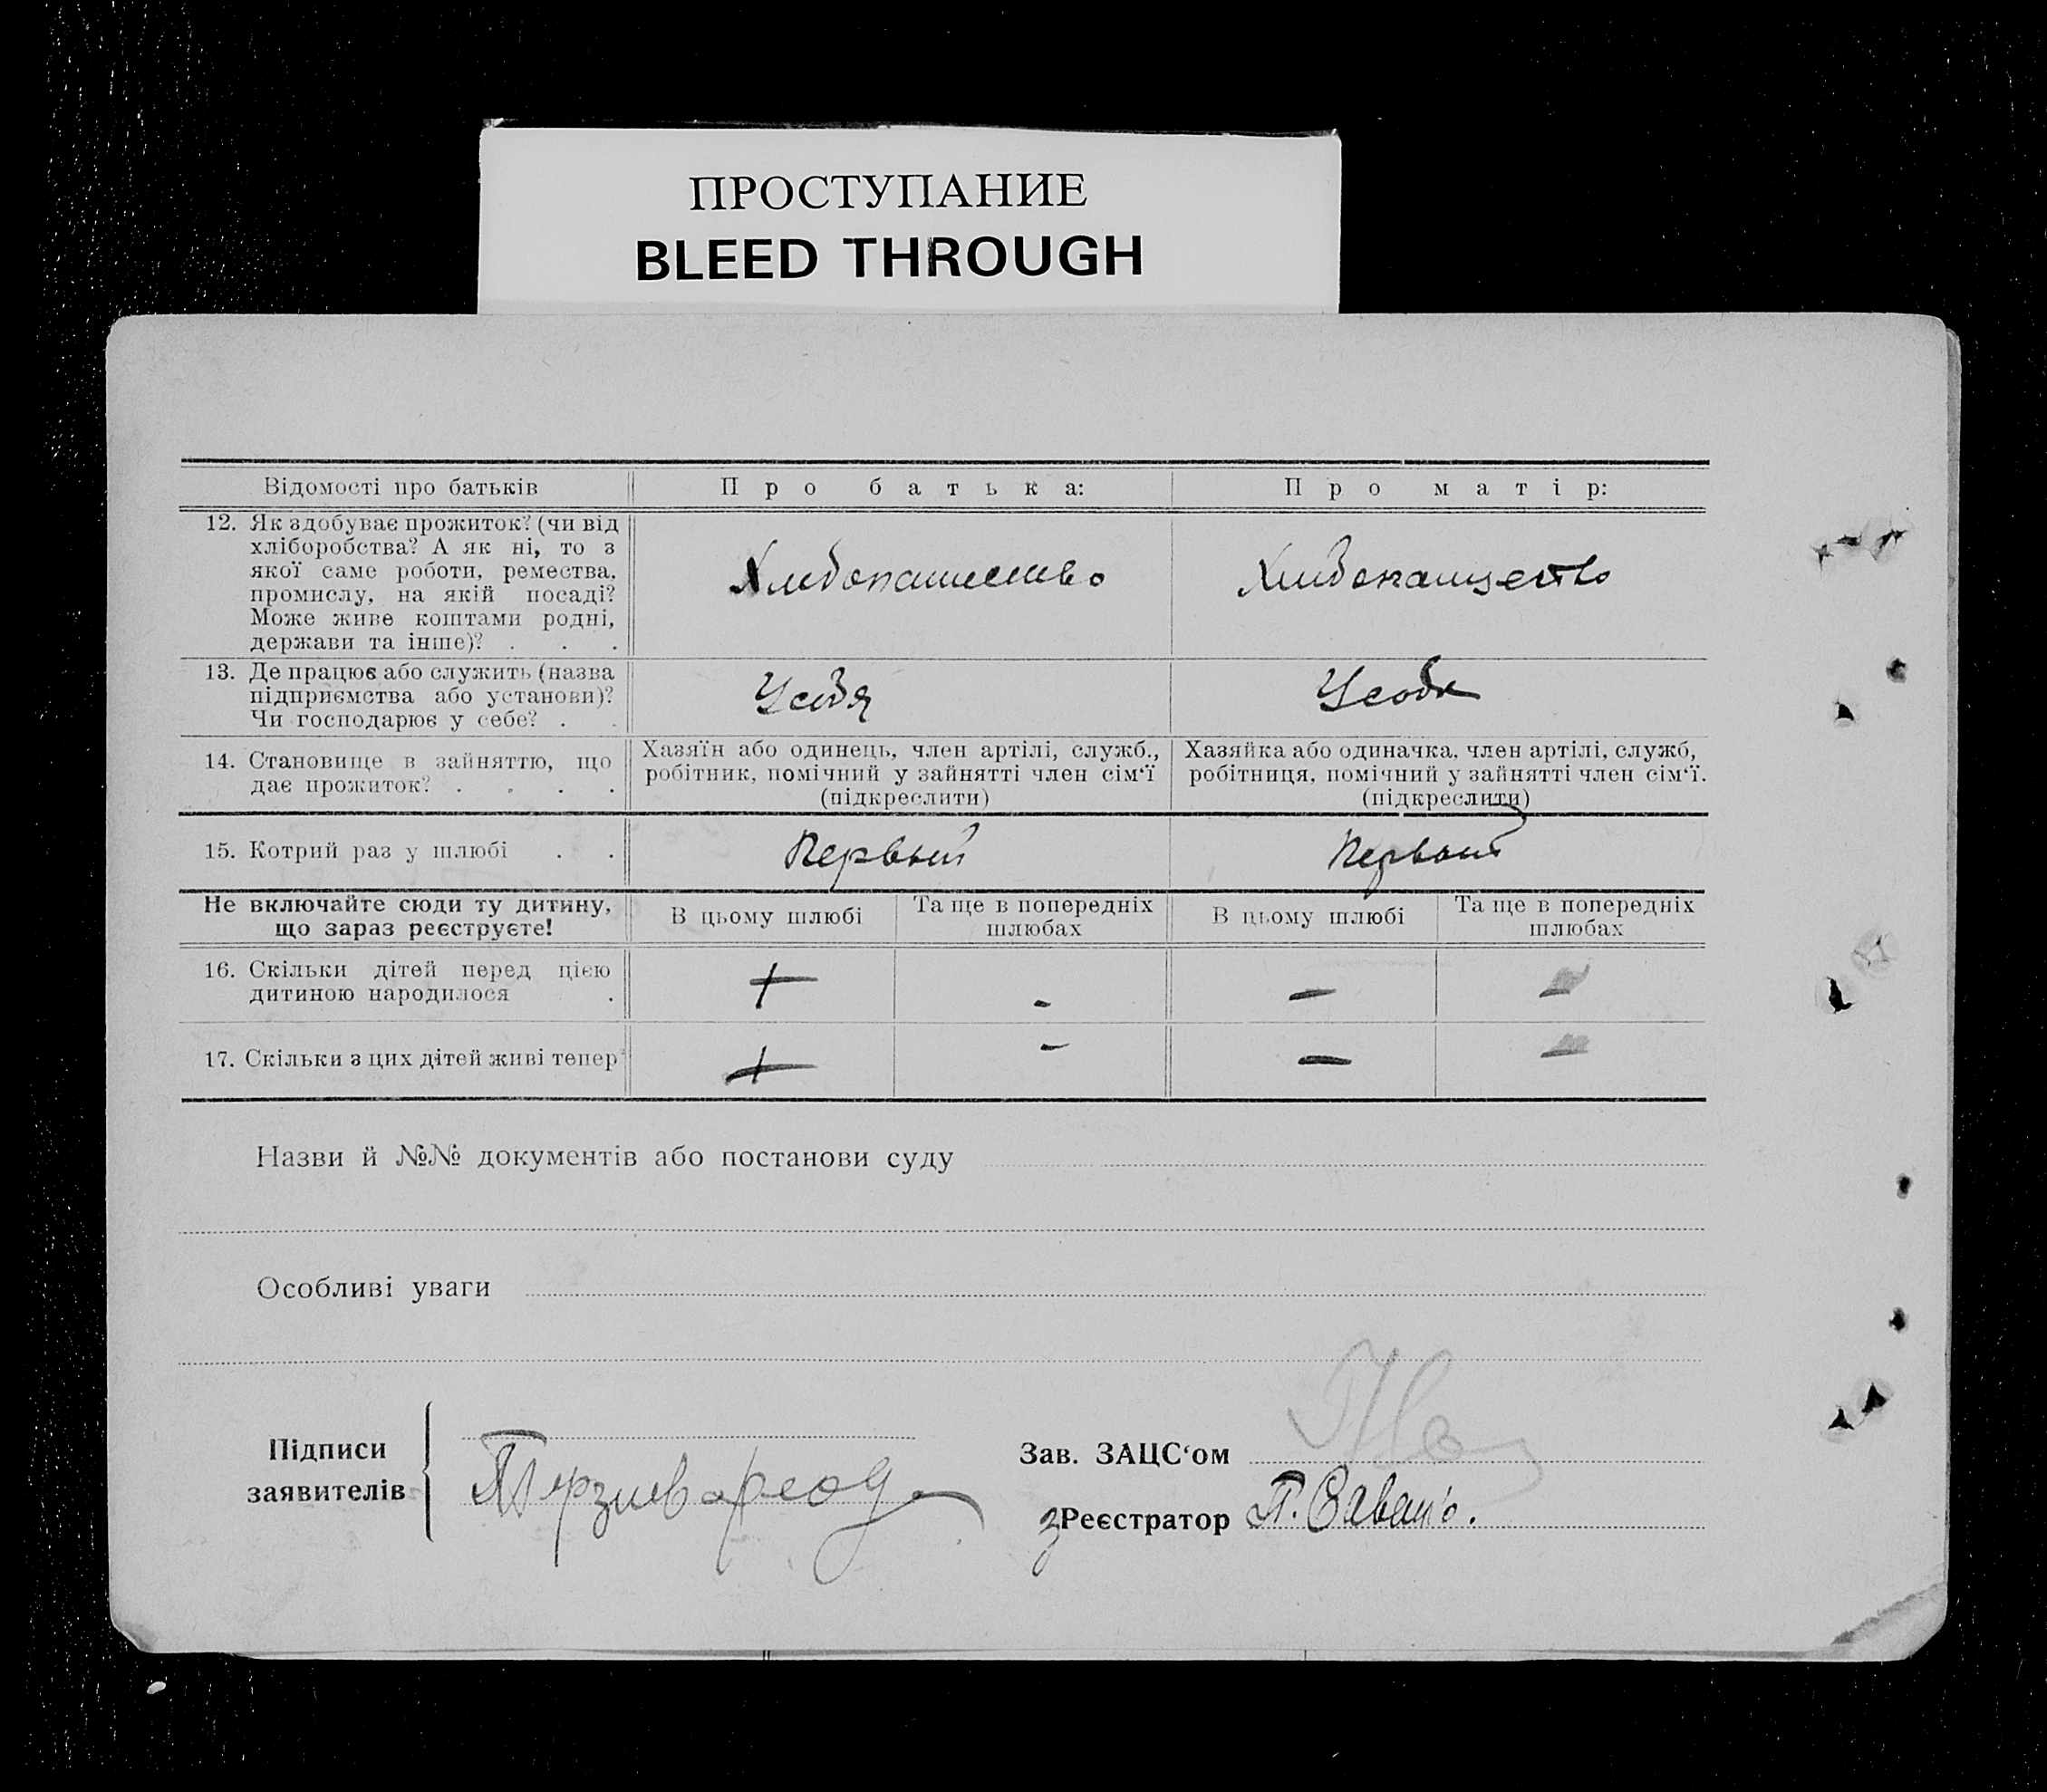 ПРОСТУПАНИЕ
BLEED THROUGH
Відомості про батьків
Про батька:
Про матір:
12. Як здобуває прожиток? (чи від
хліборобства? А як ні, то з
якої саме роботи, ремества,
промислу, на якій посаді?
Може живе коштами родні,
держави та інше)? . . .
Хлебопашество
Хлибопащество
13. Де працює або служить (назва
підприємства або установи)?
Чи господарює у себе? . .
Усебя
Усобя
14. Становище в зайняттю, що
дає прожиток? . . . .
Хазяїн або одинець, член артілі, служб.,
робітник, помічний у зайнятті член сім‘ї
(підкреслити)
Хазяйка або одиначка, член артілі, служб,
робітниця, помічний у зайнятті член сім‘ї.
(підкреслити)
15. Котрий раз у шлюбі . .
Первый
Первый
Не включайте сюди ту дитину,
що зараз реєструєте!
В цьому шлюбі
Та ще в попередніх
шлюбах
В цьому шлюбі
Та ще в попередніх
шлюбах
16. Скільки дітей перед цією
дитиною народилося .
+ - - -
17. Скільки з цих дітей живі тепер
+ - - -
Назви й №№ документів або постанови суду
Особливі уваги
Підписи
заявителів
Зав. ЗАЦС‘ом
Реєстратор
П.